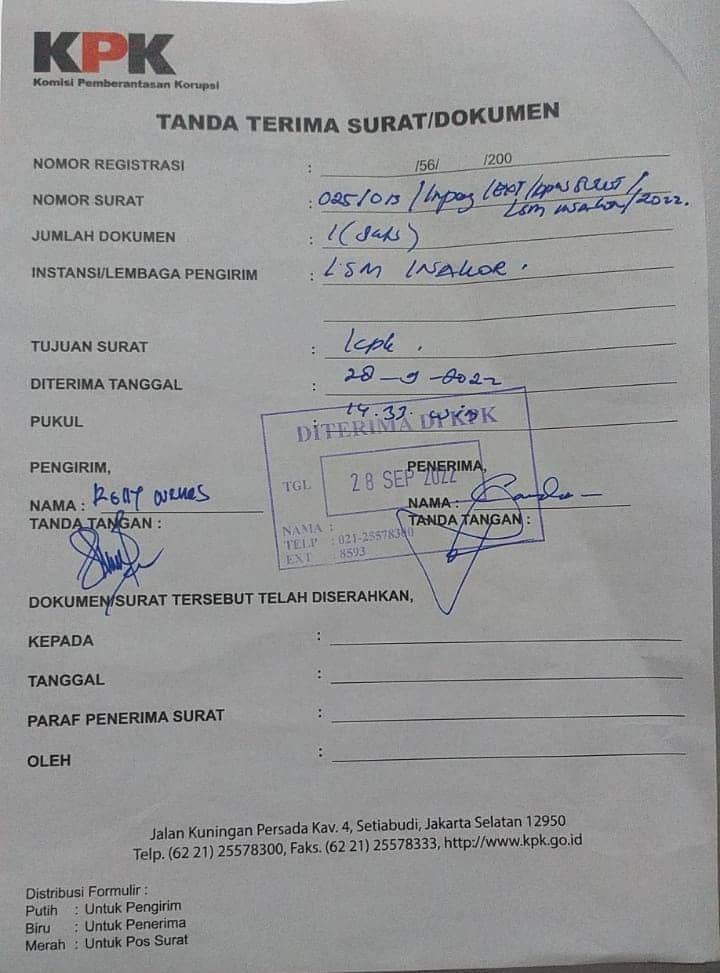 KPK
Komisi Pemberantasan Korupsi
TANDA TERIMA SURAT/DOKUMEN
NOMOR REGISTRASI : /56/ /200
NOMOR SURAT : 025/013/
LSM INSAKOR/2022.
JUMLAH DOKUMEN : 1 (satu)
INSTANSI/LEMBAGA PENGIRIM : LSM INSAKOR.
TUJUAN SURAT : kpk.
DITERIMA TANGGAL : 28-9-2022
PUKUL 14.33. wib
DITERIMA DI KPK
TGL 28 SEP 2022
NAMA :
TELP : 021-25578300
EXT : 8593
PENGIRIM,
NAMA :
TANDA TANGAN :
PENERIMA,
NAMA :
TANDA TANGAN :
DOKUMEN/SURAT TERSEBUT TELAH DISERAHKAN,
KEPADA :
TANGGAL :
PARAF PENERIMA SURAT :
OLEH :
Jalan Kuningan Persada Kav. 4, Setiabudi, Jakarta Selatan 12950
Telp. (62 21) 25578300, Faks. (62 21) 25578333, http://www.kpk.go.id
Distribusi Formulir :
Putih : Untuk Pengirim
Biru : Untuk Penerima
Merah : Untuk Pos Surat